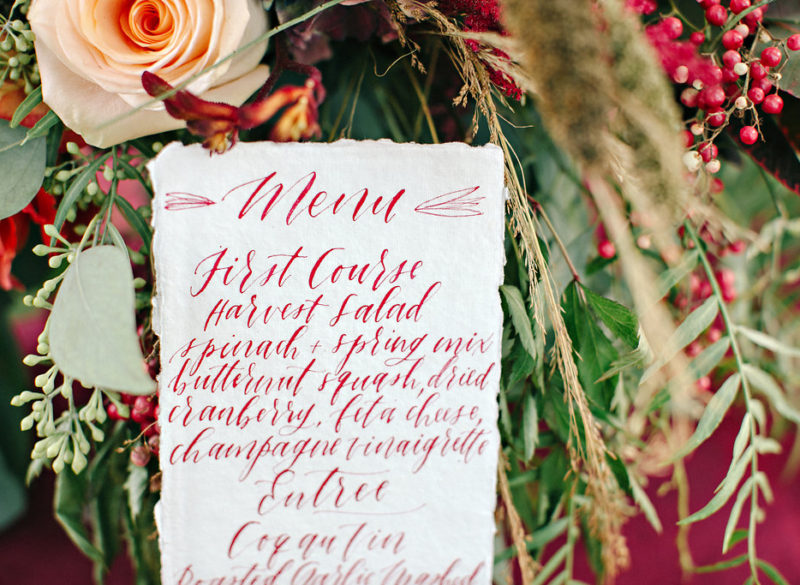 Menu
First Course
Harvest Salad
spinach + spring mix
butternut squash, dried
cranberry, feta cheese,
champagne vinaigrette
Entree
Coq aut in
Roasted Garlic Mashed